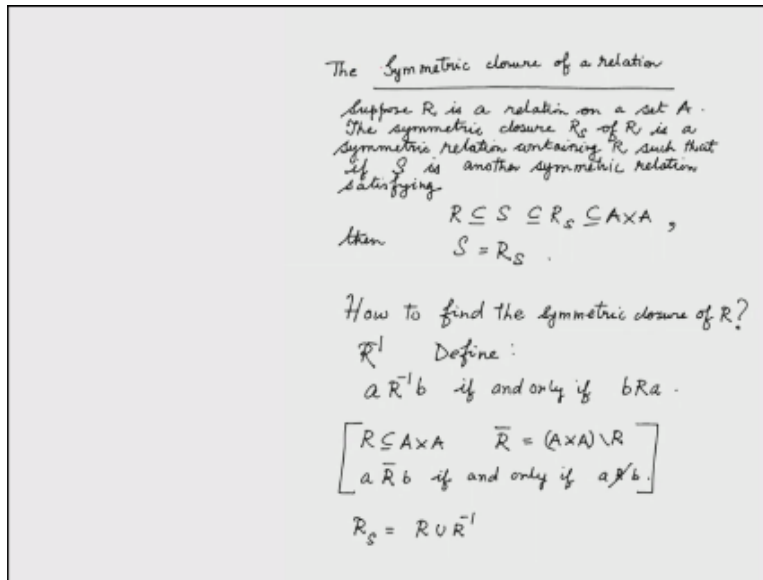 The Symmetric closure of a relation
Suppose R is a relation on a set A.
The symmetric closure R_S of R is a
symmetric relation containing R such that
if S is another symmetric relation
satisfying
R ⊆ S ⊆ R_S ⊆ A×A ,
then S = R_S .
How to find the symmetric closure of R?
R⁻¹ Define :
a R⁻¹ b if and only if bRa .
[ R ⊆ A×A R̅ = (A×A) \ R
a R̅ b if and only if a R̸ b. ]
R_S = R ∪ R⁻¹